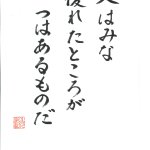 人はみな
優れたところが
つはあるものだ